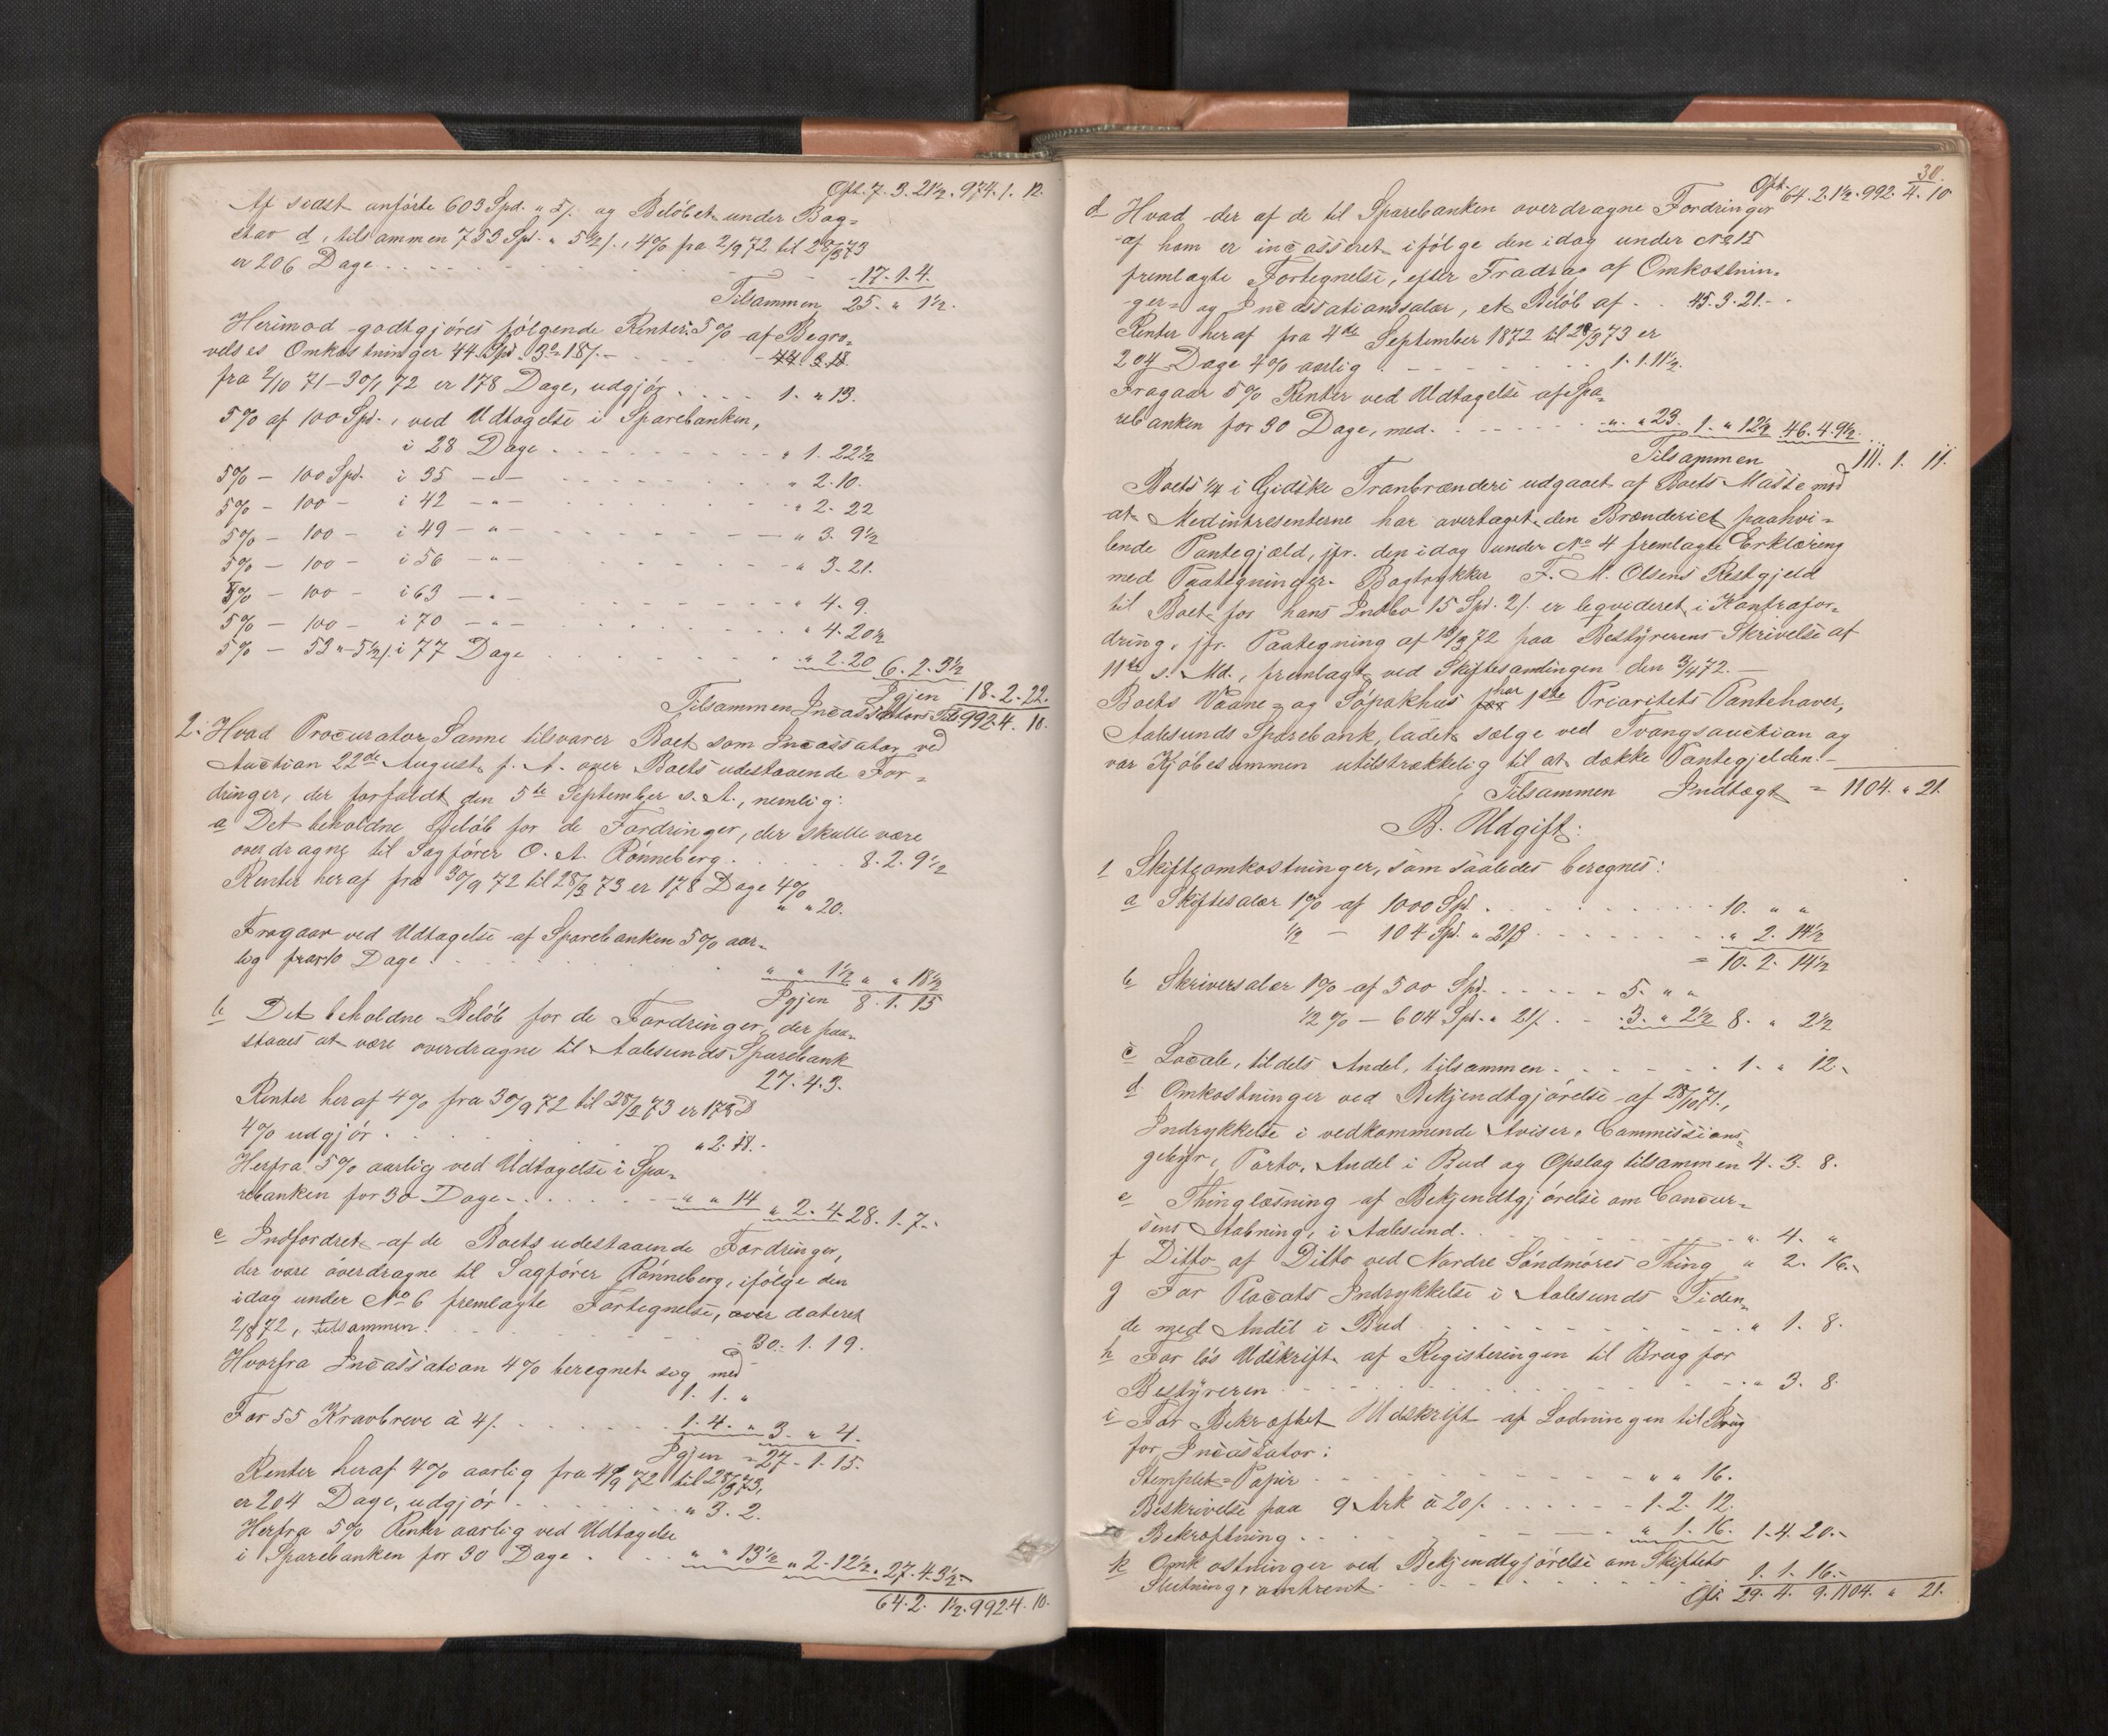 Opf. 7. 3. 21½. 974. 1. 12.
Af sidst anførte 603 Spd. " 5/. og Beløbet under Bog=
stav d, tilsammen 753 Spd. " 5½/., 4% fra 2/9 72 til 28/3 73
er 206 Dage . . . 17. 1. 4.
Tilsammen 25. " 1½.
Herimod godtgjøres følgende Renter: 5% af Begra=
velses Omkostninger 44 Spd. 3 18/. — 44. 3. 18.
fra 2/10 71 — 30/1 72 er 178 Dage, udgjør . . . 1. " 13.
5% af 100 Spd., ved Udtagelse i Sparebanken,
i 28 Dage . . . " 1. 22½
5% — 100 Spd. i 35 — " — . . . " 2. 10.
5% — 100 — i 42 — " — . . . " 2. 22
5% — 100 — i 49 — " — . . . " 3. 9½
5% — 100 — i 56 — " — . . . " 3. 21.
5% — 100 — i 63 — " — . . . " 4. 9.
5% — 100 — i 70 — " — . . . " 4. 20½
5% — 53 " 5½/. i 77 Dage . . . " 2. 20 6. 2. 3½
Igjen 18. 2. 22.
Tilsammen Incassators Tils 992. 4. 10.
2. Hvad Procurator Sanne tilsvarer Boet som Incassator ved
Auction 22de August f. A. over Boets udestaaende For=
dringer, der forfaldt den 5te September s. A., nemlig:
a Det beholdne Beløb for de Fordringer, der skulle være
overdragne til Sagfører O. A. Rønneberg . . . 8. 2. 9½
Renter heraf fra 30/9 72 til 28/3 73 er 178 Dage 4%
" " 20.
Fragaar ved Udtagelse af Sparebanken 5% aar=
lig for 10 Dage . . . " " 1½ " " 18½
Igjen 8. 1. 15
b Det beholdne Beløb for de Fordringer, der paa=
staaes at være overdragne til Aalesunds Sparebank
27. 4. 3.
Renter heraf 4% fra 30/9 72 til 28/3 73 er 178 D
4% udgjør . . . " 2. 18.
Herfra 5% aarlig ved Udtagelse i Spa=
rebanken for 30 Dage . . . " " 14 " 2. 4. 28. 1. 7.
c Indfordret af de Boets udestaaende Fordringer,
der vare overdragne til Sagfører Rønneberg, ifølge den
idag under No 6 fremlagte Fortegnelse, over dateret
2/8 72, tilsammen . . . 30. 1. 19.
Hvorfra Incassation 4% beregnet sig med
1. 1. "
For 55 Kravbreve à 4/. . . . 1. 4. " 3. " 4.
Igjen = 27. 1. 15.
Renter heraf 4% aarlig fra 4/9 72 til 28/3 73,
er 204 Dage, udgjør . . . " 3. 2.
Herfra 5% Renter aarlig ved Udtagelse
i Sparebanken for 30 Dage . . . " " 13½ " 2. 12½. 27. 4. 3½
64. 2. 1½. 992. 4. 10.
30.
Opf. 64. 2. 1½. 992. 4. 10
d Hvad der af de til Sparebanken overdragne Fordringer
af ham er incasseret ifølge den idag under No 15
fremlagte Fortegnelse, efter Fradrag af Omkostnin=
ger= og Incassationssalær, et Beløb af . . 45. 3. 21.
Renter heraf fra 4de September 1872 til 28/3 73 er
204 Dage 4% aarlig . . . 1. 1. 11½.
Fragaar 5% Renter ved Udtagelse af Spa=
rebanken for 30 Dage, med . . . " " 23. 1. " 12½ 46. 4. 9½
Tilsammen 111. 1. 11.
Boets ¼ i Gidske Tranbrænderi udgaaet af Boets Masse med
at Medintresenterne har overtaget den Brænderiet paahvi=
lende Pantegjæld, jfr. den idag under No 4 fremlagte Erklæring
med Paategninger. Bogtrykker F. M. Olsens Restgjeld
til Boet for hans Indbo 15 Spd. 2/. er leqvideret i Kontrafor=
dring, jfr. Paategning af 13/3 72 paa Bestyrerens Skrivelse af
11te s. Md., fremlagt ved Skiftesamlingen den 3/4 72. —
Boets Vaane= og Søpakhus har 1ste Prioritets Pantehaver,
Aalesunds Sparebank, ladet sælge ved Tvangsauction og
var Kjøbesummen utilstrækkelig til at dække Pantegjelden. —
Tilsammen Indtægt = 1104. " 21.
B. Udgift:
1 Skifteomkostninger, som saaledes beregnes:
a Skiftesalær 1% af 1000 Spd. . . . 10. " "
½ — 104 Spd. " 21ß . . . " 2. 14½
= 10. 2. 14½
b Skriversalær 1% af 500 Spd. . . . 5. " "
½ % — 604 Spd. " 21/. . . 3. " 2½ 8. " 2½
c Locale, tildels Andel, tilsammen . . . 1. " 12.
d Omkostninger ved Bekjendtgjørelse af 28/10 71.,
Indrykkelse i vedkommende Aviser, Commissions=
gebyr, Porto, Andel i Bud og Opslag tilsammen 4. 3. 8.
e Thinglæsning af Bekjendtgjørelse om Concur=
sens Aabning, i Aalesund . . . " 4. "
f Ditto af Ditto ved Nordre Søndmøres Thing " 2. 16.
g For Placats Indrykkelse i Aalesunds Tiden=
de med Andel i Bud . . . " 1. 8.
h For løs Udskrift af Registeringen til Brug for
Bestyreren . . . " 3. 8.
i For Bekræftet Udskrift af Lodningen til Brug
for Incassator:
Stemplet=Papir . . . " " 16.
Beskrivelse paa 9 Ark à 20/. . . . 1. 2. 12.
Bekræftning . . . " 1. 16. 1. 4. 20.
k Omkostninger ved Bekjendtgjørelse om Skiftets
Slutning, omtrent . . . 1. 1. 16.
Opf. 29. 4. 9. 1104. " 21.